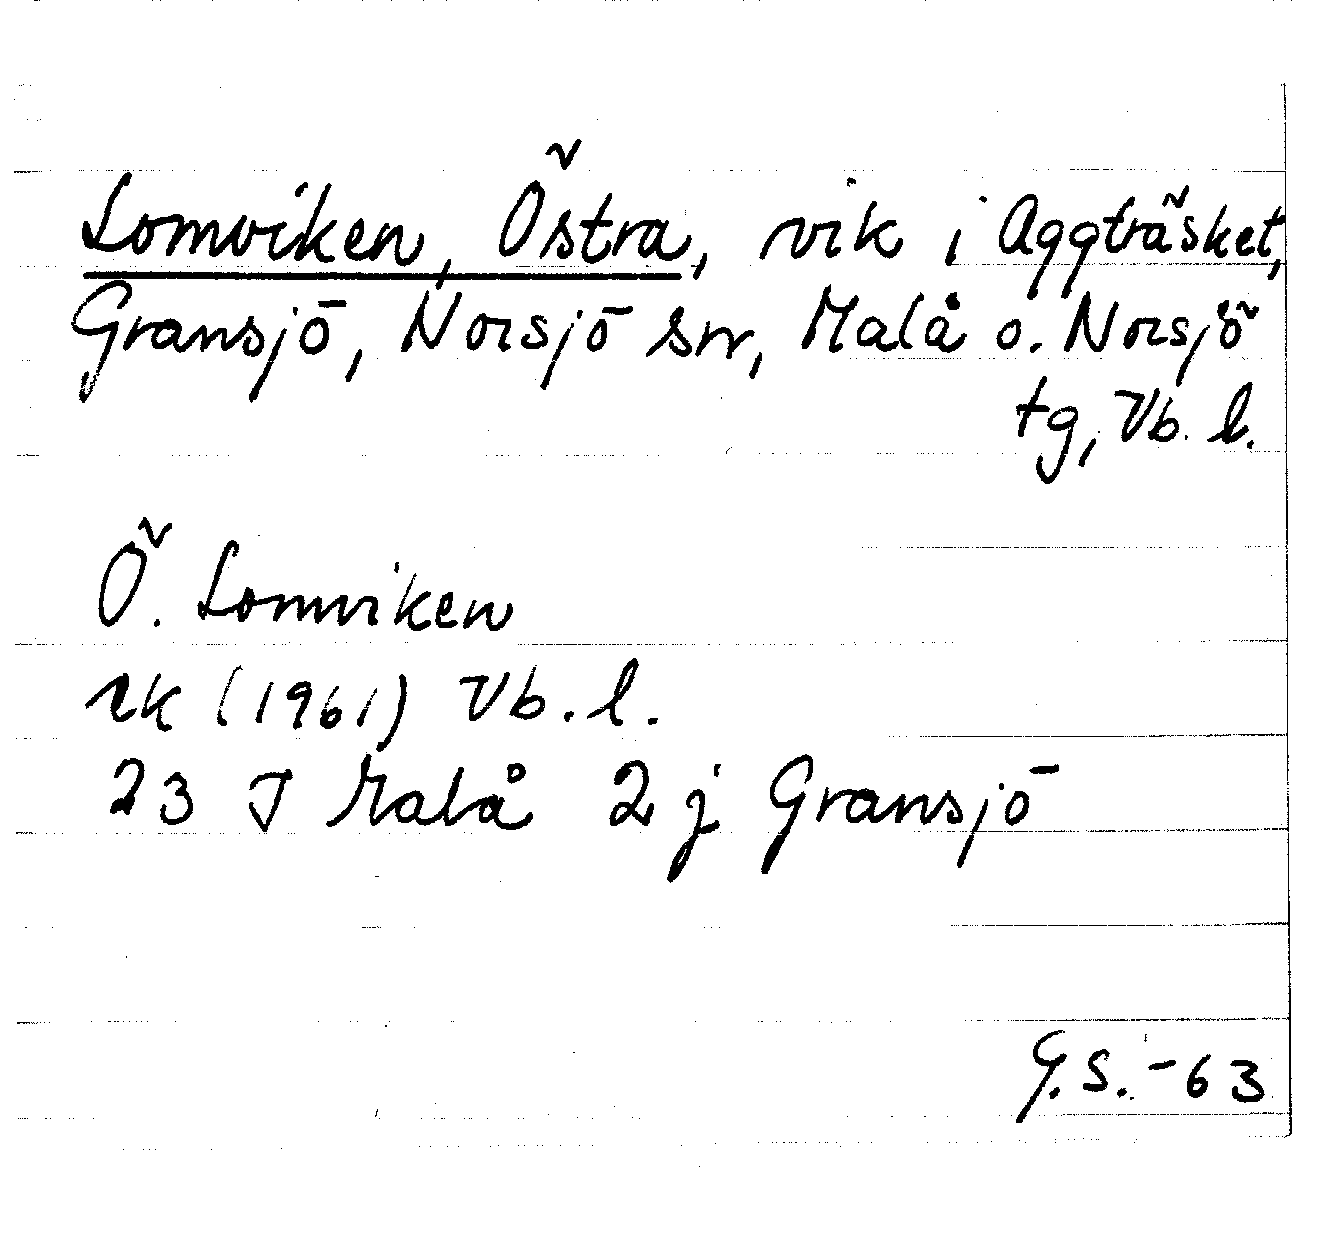 Lomviken, Östra, vik i Aggträsket,
Gransjö, Norsjö sn, Malå o. Norsjö
tg, Vb. l.
Ö. Lomviken
rk (1961) Vb. l.
23 J Malå 2 j Gransjö
G.S. -63